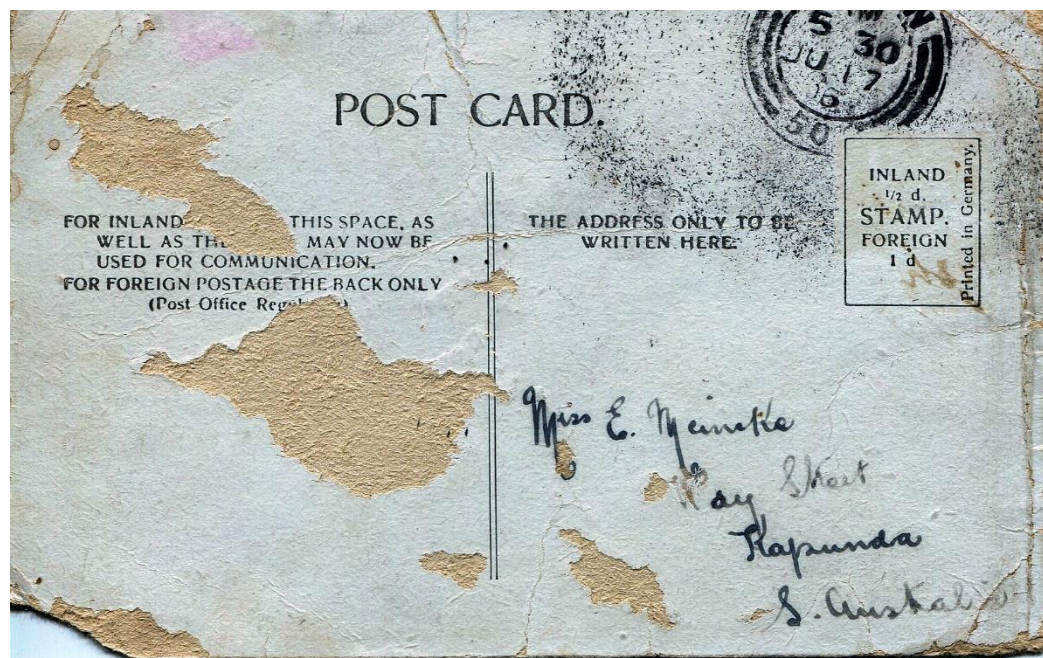 M N
5 30
JU 17
06
50
POST CARD.
FOR INLAND THIS SPACE, AS
WELL AS THE MAY NOW BE
USED FOR COMMUNICATION.
FOR FOREIGN POSTAGE THE BACK ONLY
(Post Office Regu
THE ADDRESS ONLY TO BE
WRITTEN HERE.
INLAND
1/2 d.
STAMP.
FOREIGN
1 d
Printed in Germany.
Miss E. Meincke
Street
Kapunda
S. Australia